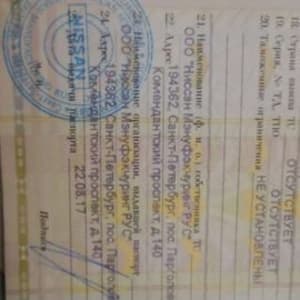 18. Страна вывоза ТС ОТСУТСТВУЕТ
19. Серия, № ТД, ТПО ОТСУТСТВУЕТ
20. Таможенные ограничения НЕ УСТАНОВЛЕНЫ
21. Наименование (ф. и. о.) собственника ТС
ООО "Ниссан Мэнуфэкчуринг РУС"
22. Адрес 194362, Санкт-Петербург, пос. Парголово,
Комендантский проспект, д.140
23. Наименование организации, выдавшей паспорт
ООО "Ниссан Мэнуфэкчуринг РУС"
24. Адрес 194362, Санкт-Петербург, пос. Парголово,
Комендантский проспект, д.140
выдачи паспорта 22.08.17
М.П.
Подпись
NISSAN